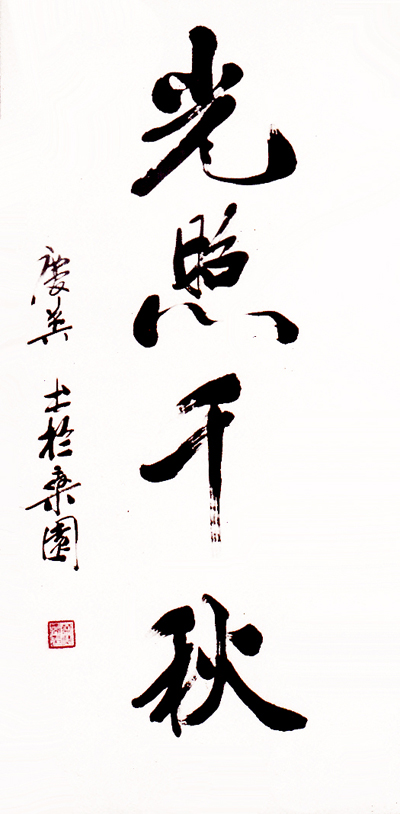 光照千秋
慶英 士於桑園